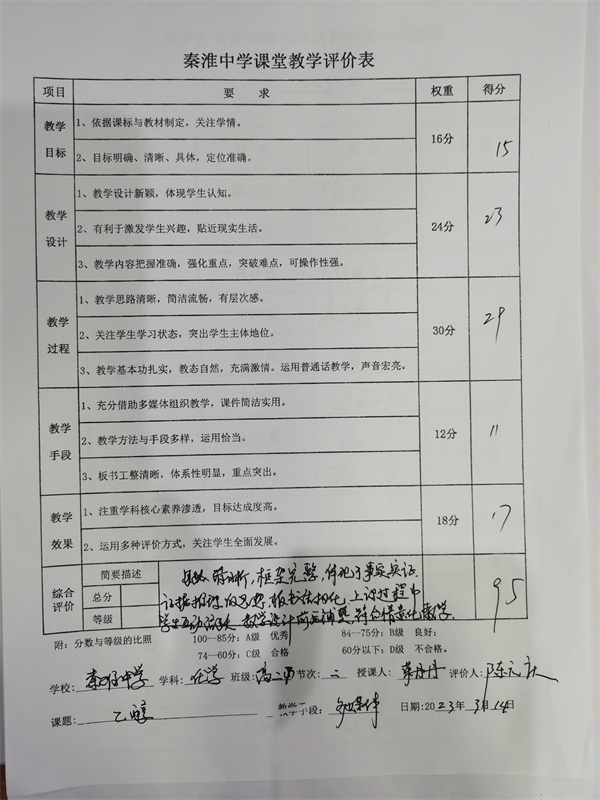 秦淮中学课堂教学评价表
项目 要 求 权重 得分
教学目标 1、依据课标与教材制定，关注学情。 16分 15
2、目标明确、清晰、具体，定位准确。
教学设计 1、教学设计新颖，体现学生认知。 24分 23
2、有利于激发学生兴趣，贴近现实生活。
3、教学内容把握准确，强化重点，突破难点，可操作性强。
教学过程 1、教学思路清晰，简洁流畅，有层次感。 30分 29
2、关注学生学习状态，突出学生主体地位。
3、教学基本功扎实，教态自然，充满激情。运用普通话教学，声音宏亮。
教学手段 1、充分借助多媒体组织教学，课件简洁实用。 12分 11
2、教学方法与手段多样，运用恰当。
3、板书工整清晰，体系性明显，重点突出。
教学效果 1、注重学科核心素养渗透，目标达成度高。 18分 17
2、运用多种评价方式，关注学生全面发展。
综合评价 简要描述 框架完整，体现了事实实证 95
总分 证据推理的思想，板书结构化，上课过程中
等级 学生互动 教学设计前后 符合情景化教学。
附：分数与等级的比照 100—85：A级 优秀 84—75分：B级 良好；
74—60分：C级 合格 60分以下：D级 不合格。
学校：秦淮中学 学科：化学 班级：高二 节次：二 授课人： 丹丹 评价人：陈元
课题：乙醇 手段：多媒体 日期：2023年3月14日